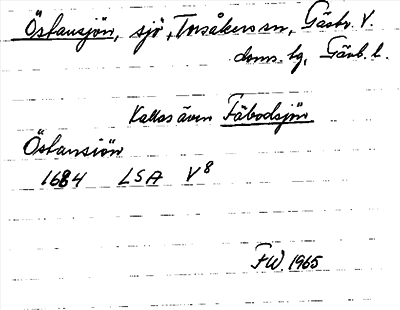 Östansjön, sjö, Torsåkers sn, Gästr. V.
doms. hg, Gävb. l.
Kallas även Fäbodsjön
Östansiön
1684 LSA V8
FW. 1965